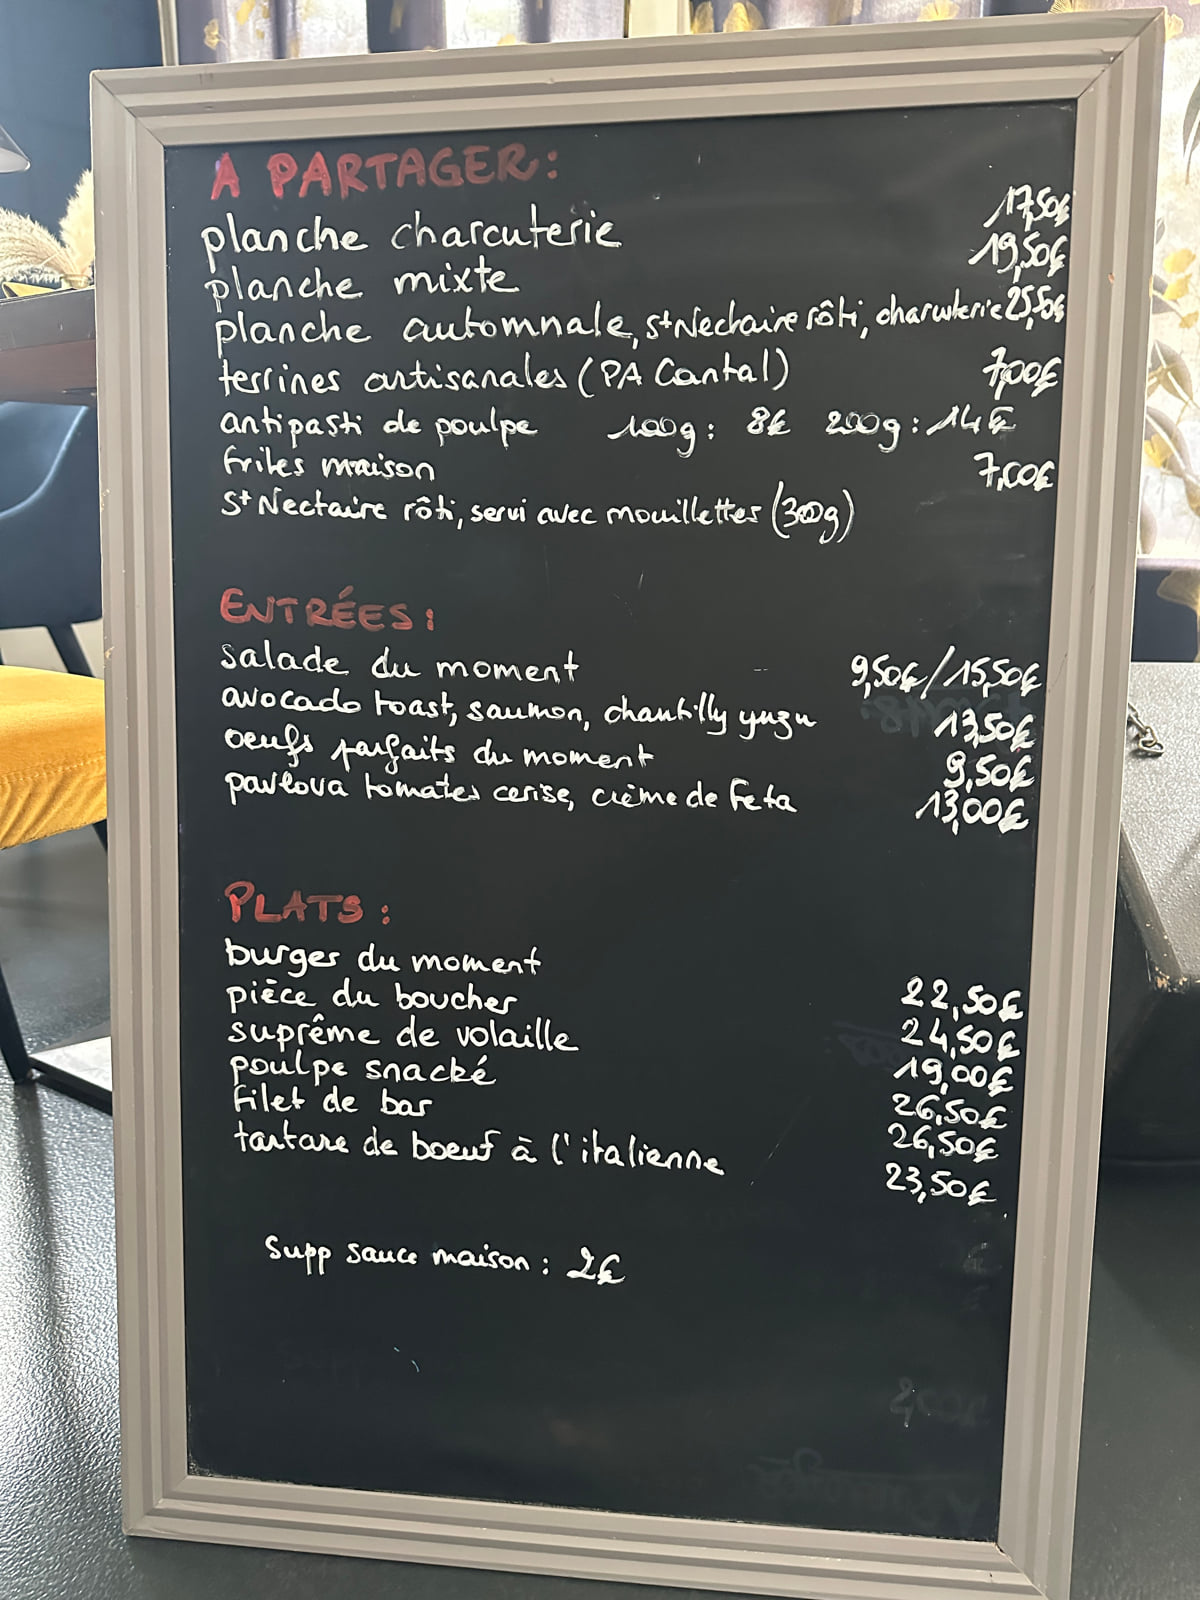 A PARTAGER:
planche charcuterie 17,50€
planche mixte 19,50€
planche automnale, St Nectaire rôti, charcuterie 25,50€
terrines artisanales (PA Cantal) 7,00€
antipasti de poulpe 100g: 8€ 200g: 14€
frites maison 7,00€
St Nectaire rôti, servi avec mouillettes (300g)
ENTRÉES:
salade du moment 9,50€/15,50€
avocado toast, saumon, chantilly yuzu 13,50€
oeufs parfaits du moment 9,50€
pavlova tomates cerise, crème de feta 13,00€
PLATS:
burger du moment 22,50€
pièce du boucher 24,50€
suprême de volaille 19,00€
poulpe snacké 26,50€
filet de bar 26,50€
tartare de boeuf à l'italienne 23,50€
Supp sauce maison: 2€